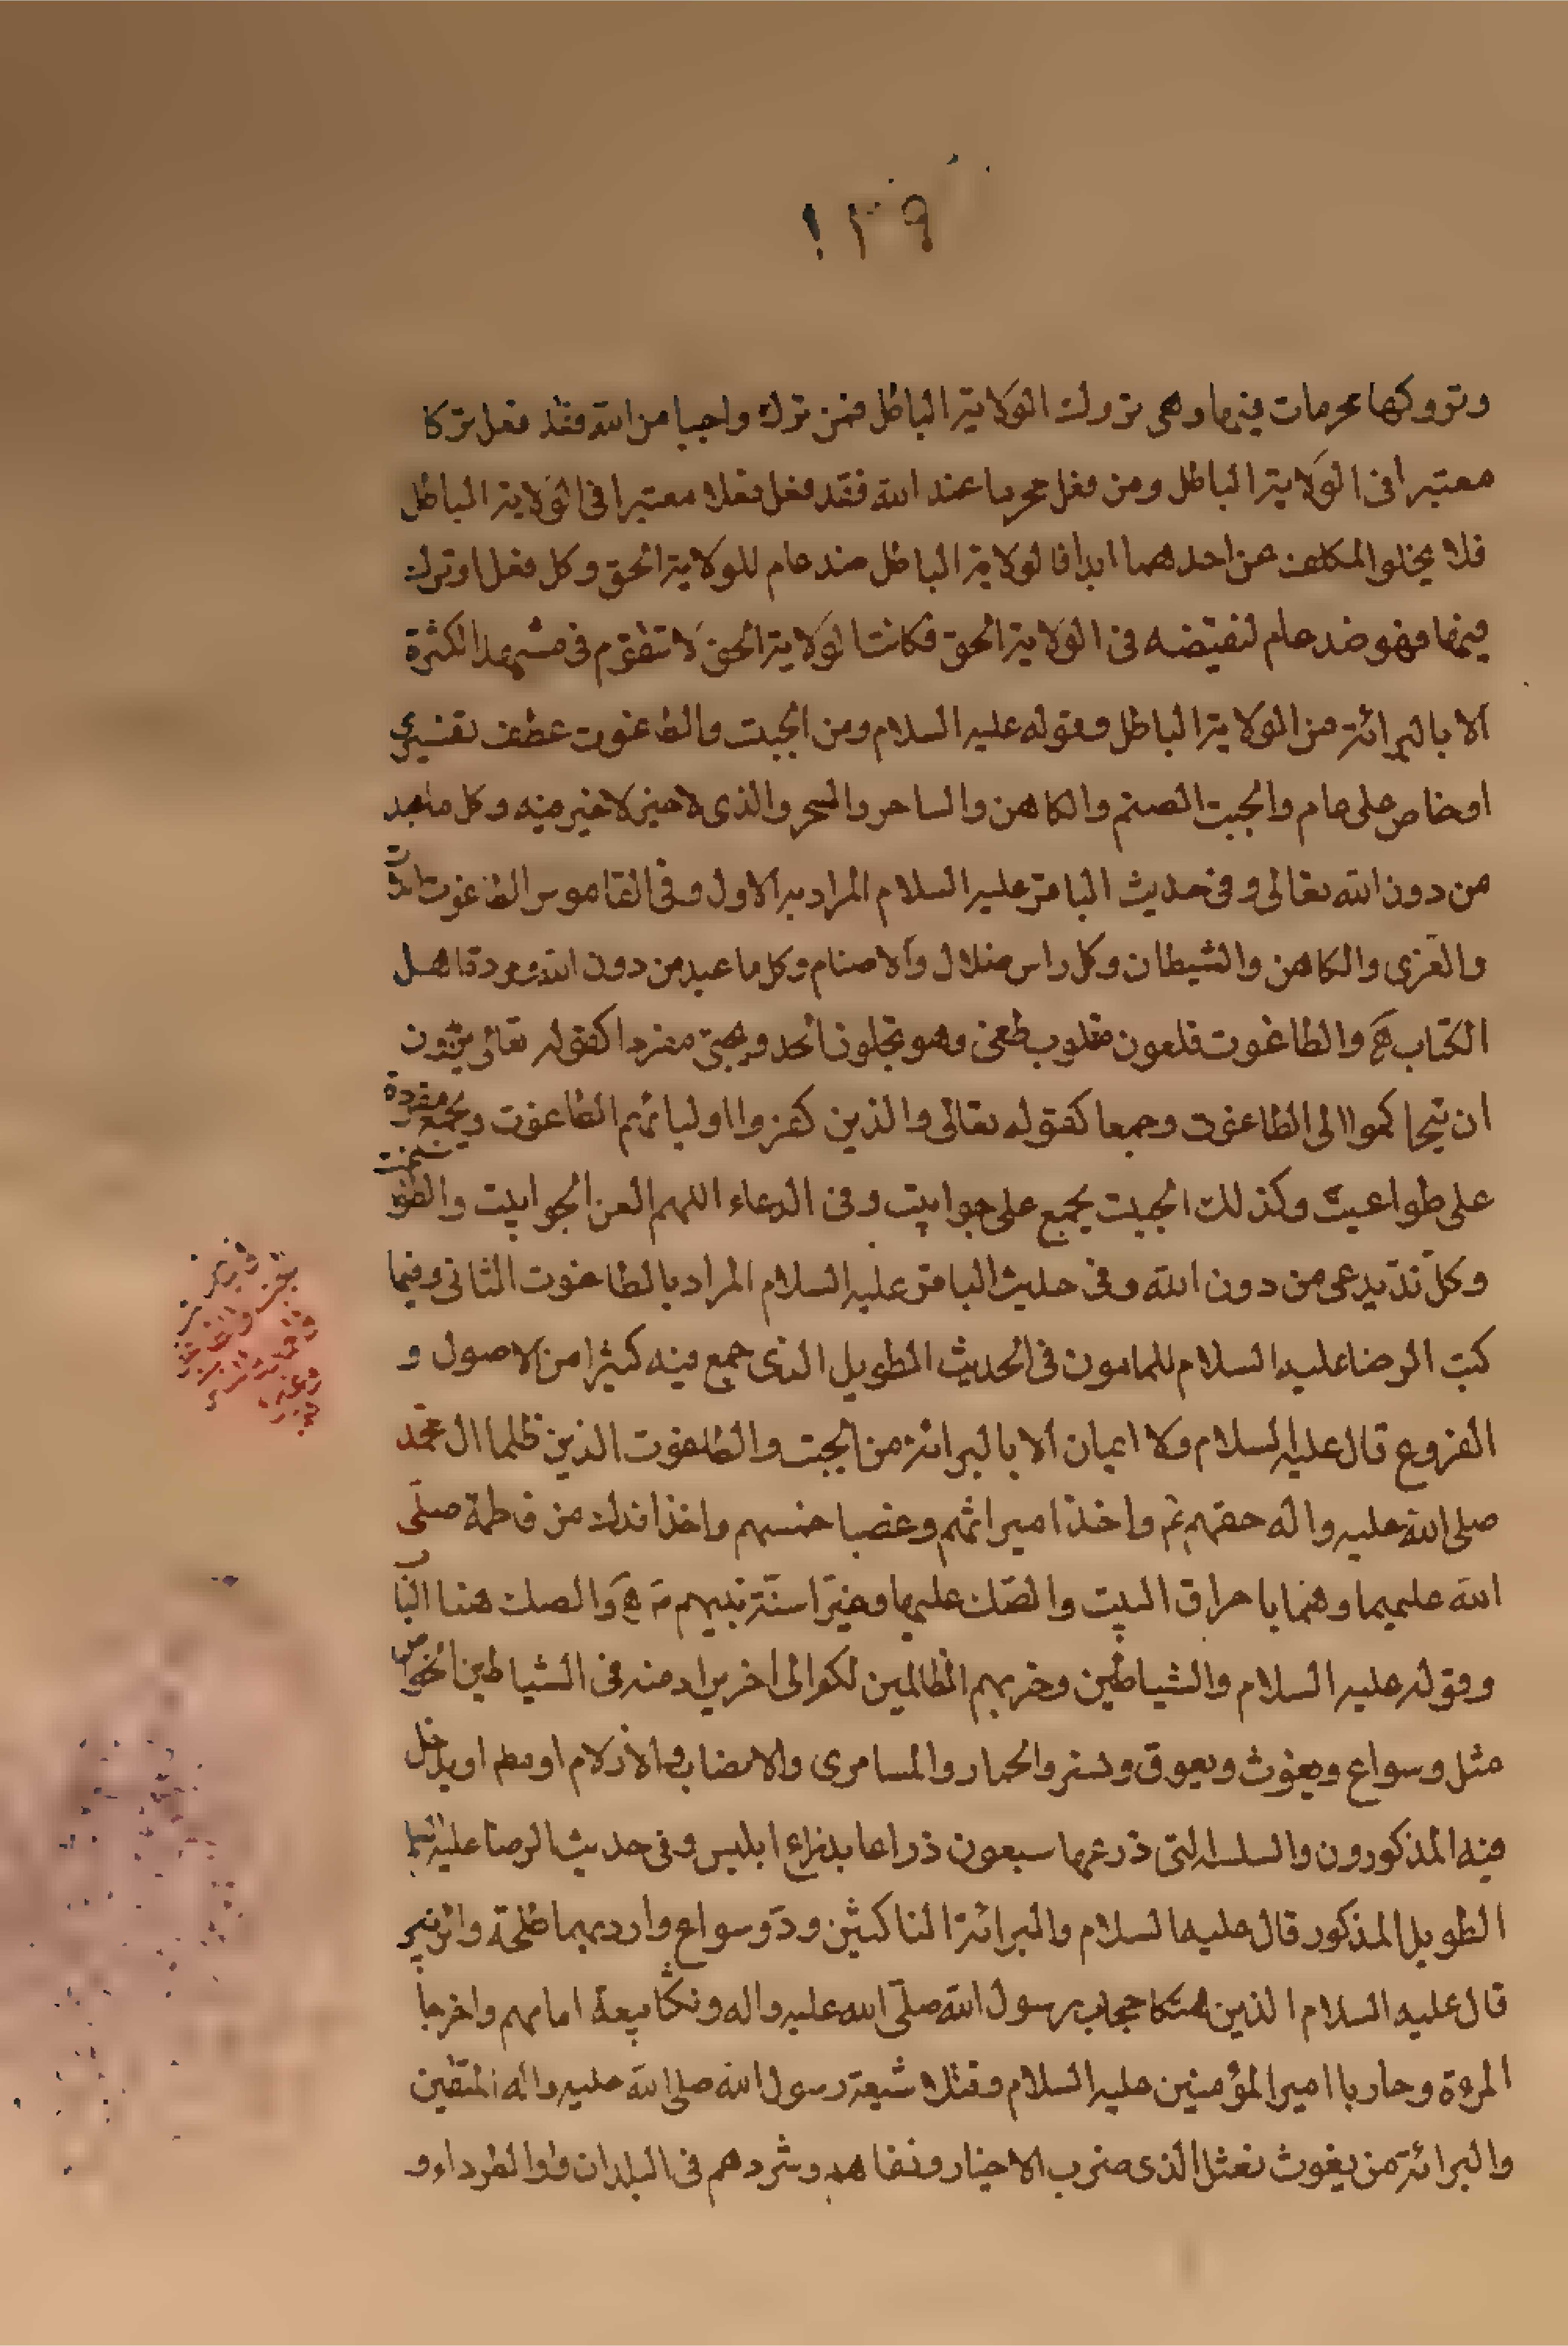 ١٣٩
وتروكها محرمات فيها وهى تروك الولاية الباطل فمن ترك واجبا من الله فقد فعل تركا
معتبرا فى الولاية الباطل ومن فعل محرما عند الله فقد فعل فعلا معتبرا فى الولاية الباطل
فلا يخلوا المكلف عن احدهما ابدا فالولاية الباطل ضد عام للولاية الحق وكل فعل او ترك
فيها فهو ضد عام لنقيضه فى الولاية الحق فكانت الولاية الحق لا تتقوم فى مشهد الكثرة
الا بالبرائة من الولاية الباطل وقوله عليه السلام ومن الجبت والطاغوت عطف تفسيرى
او خاص على عام والجبت الصنم والكاهن والساحر والسحر والذى لا خير فيه وكل ما عبد
من دون الله تعالى وفى حديث الباقر عليه السلام المراد به الاول وفى القاموس الطاغوت اللات
والعزى والكاهن والشيطان وكل راس ضلال والاصنام وكل ما عبد من دون الله ومردة اهل
الكتاب والطاغوت فلعوت مقلوب طغى وهو يجئ مفردا كقوله تعالى يريدون
ان يتحاكموا الى الطاغوت وجمعا كقوله تعالى والذين كفروا اوليائهم الطاغوت ويجمع مفرده
على طواغيت وكذلك الجبت يجمع على جوابيت وفى الدعاء اللهم العن الجوابيت والطواغيت
وكل ند يدعى من دون الله وفى حديث الباقر عليه السلام المراد بالطاغوت الثانى وفيما
كتب الرضا عليه السلام للمامون فى الحديث الطويل الذى جمع فيه كثيرا من الاصول و
الفروع قال عليه السلام ولا ايمان الا بالبرائة من الجبت والطاغوت الذين ظلما ال محمد
صلى الله عليه واله حقهم واخذا ميراثهم وغصبا خمسهم واخذا فدك من فاطمة صلى
الله عليهما وهما باحراق البيت والصك عليها وغيرا سنة نبيهم والصك هنا الباب
وقوله عليه السلام والشياطين وحزبهم الظالمين لكم الى اخر يراد منه فى الشياطين
مثل وسواع ويغوث ويعوق ونسر والحمار والسامرى والانصاب والازلام او يدخل
فيه المذكورون والسلسلة التى ذرعها سبعون ذراعا بذراع ابليس وفى حديث الرضا عليه السلام
الطويل المذكور قال عليه السلام والبرائة الناكثين ود وسواع واردبهما طلحة والزبير
قال عليه السلام الذين هتكا حجاب رسول الله صلى الله عليه واله ونكثا بيعة امامهم واخرجا
المرءة وحاربا امير المؤمنين عليه السلام وقتلا شيعة رسول الله صلى الله عليه واله المتقين
والبرائة من يغوث نعثل الذى ضرب الاخيار ونفاهم وشردهم فى البلدان واوا الطرداء و